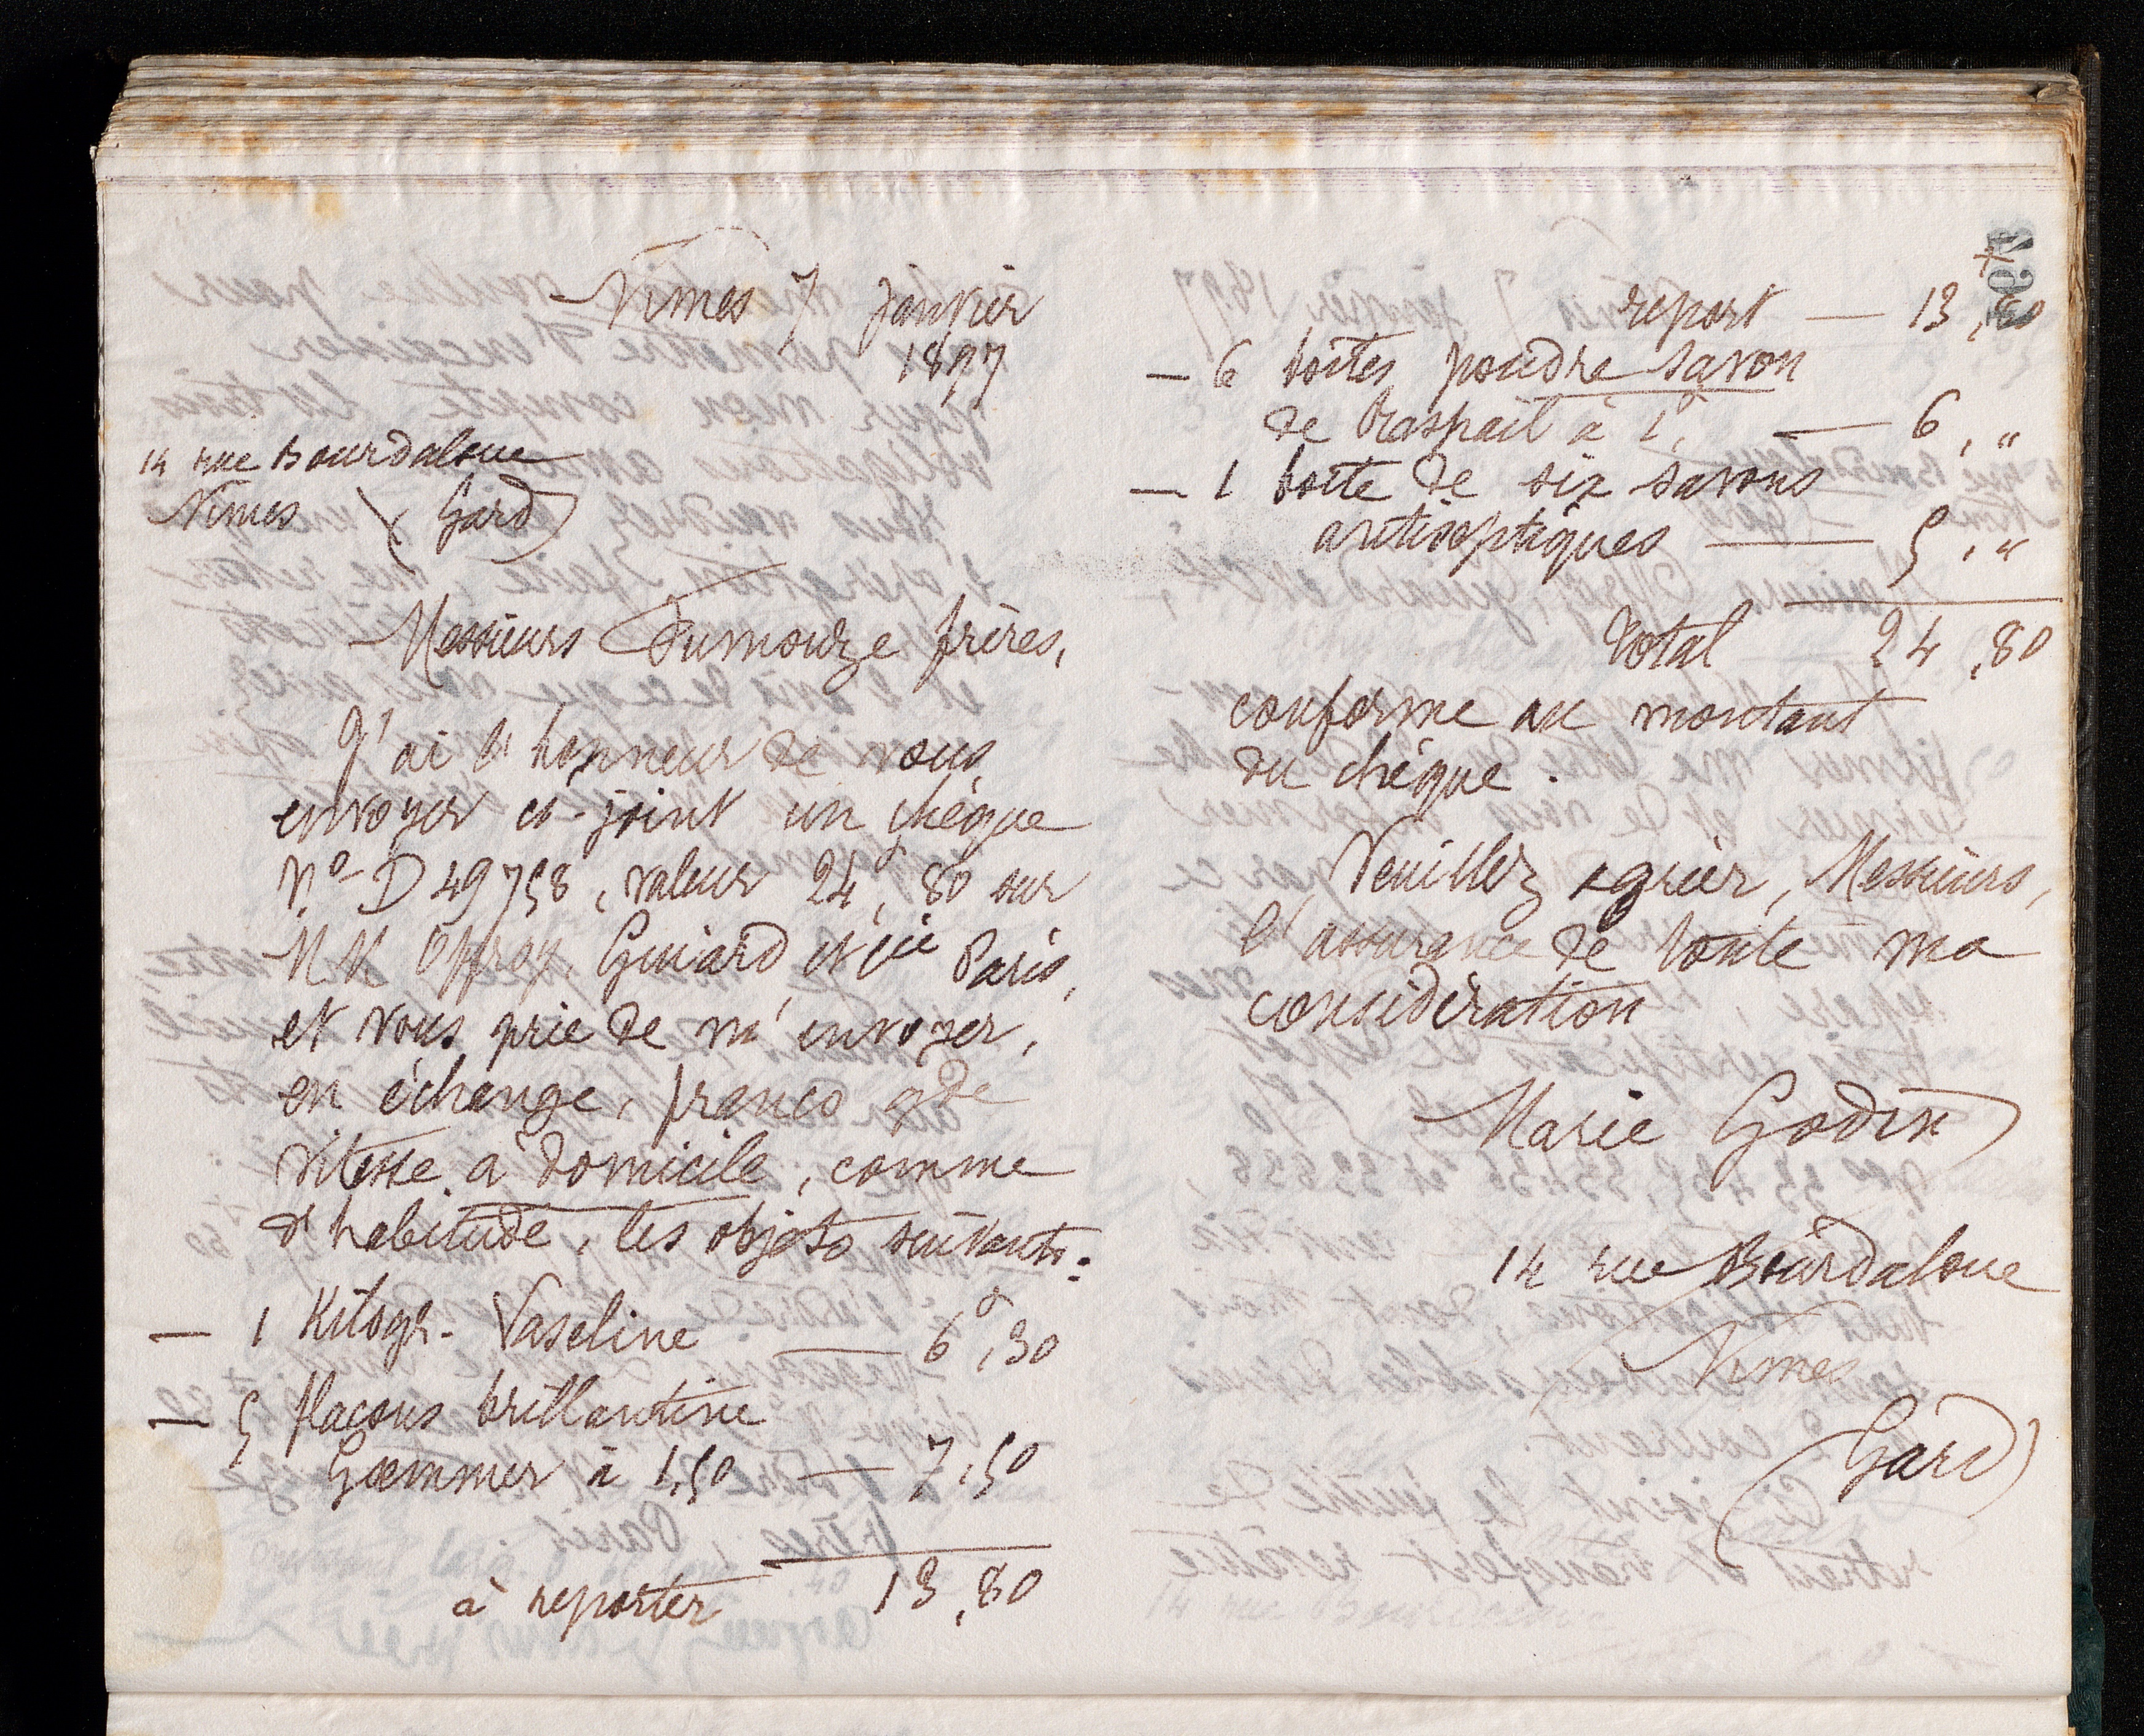 Nimes 7 janvier
1897
14 rue Bourdaloue
Nimes (Gard)
Messieurs Dumouze frères,
J'ai l'honneur de vous
envoyer ci-joint un chèque
No D 49758, valeur 24f, 80 sur
MM Offroy, Guiard et Cie Paris,
et vous prie de m'envoyer,
en échange, franco gde
vitesse à domicile, comme
d'habitude, les objets suivants:
— 1 Kilogr. Vaseline — 6f,30
— 5 flacons brillantine
Goemmer à 1,50 — 7,50
à reporter 13,80
report — 13,80
— 6 boites poudre savon
de Raspail à 1f, — 6,"
— 1 boite de six savons
antiseptiques — 5,"
Total 24,80
conforme au montant
du chèque.
Veuillez agréer, Messieurs,
l'assurance de toute ma
considération
Marie Godin
14 rue Bourdaloue
Nimes
(Gard)